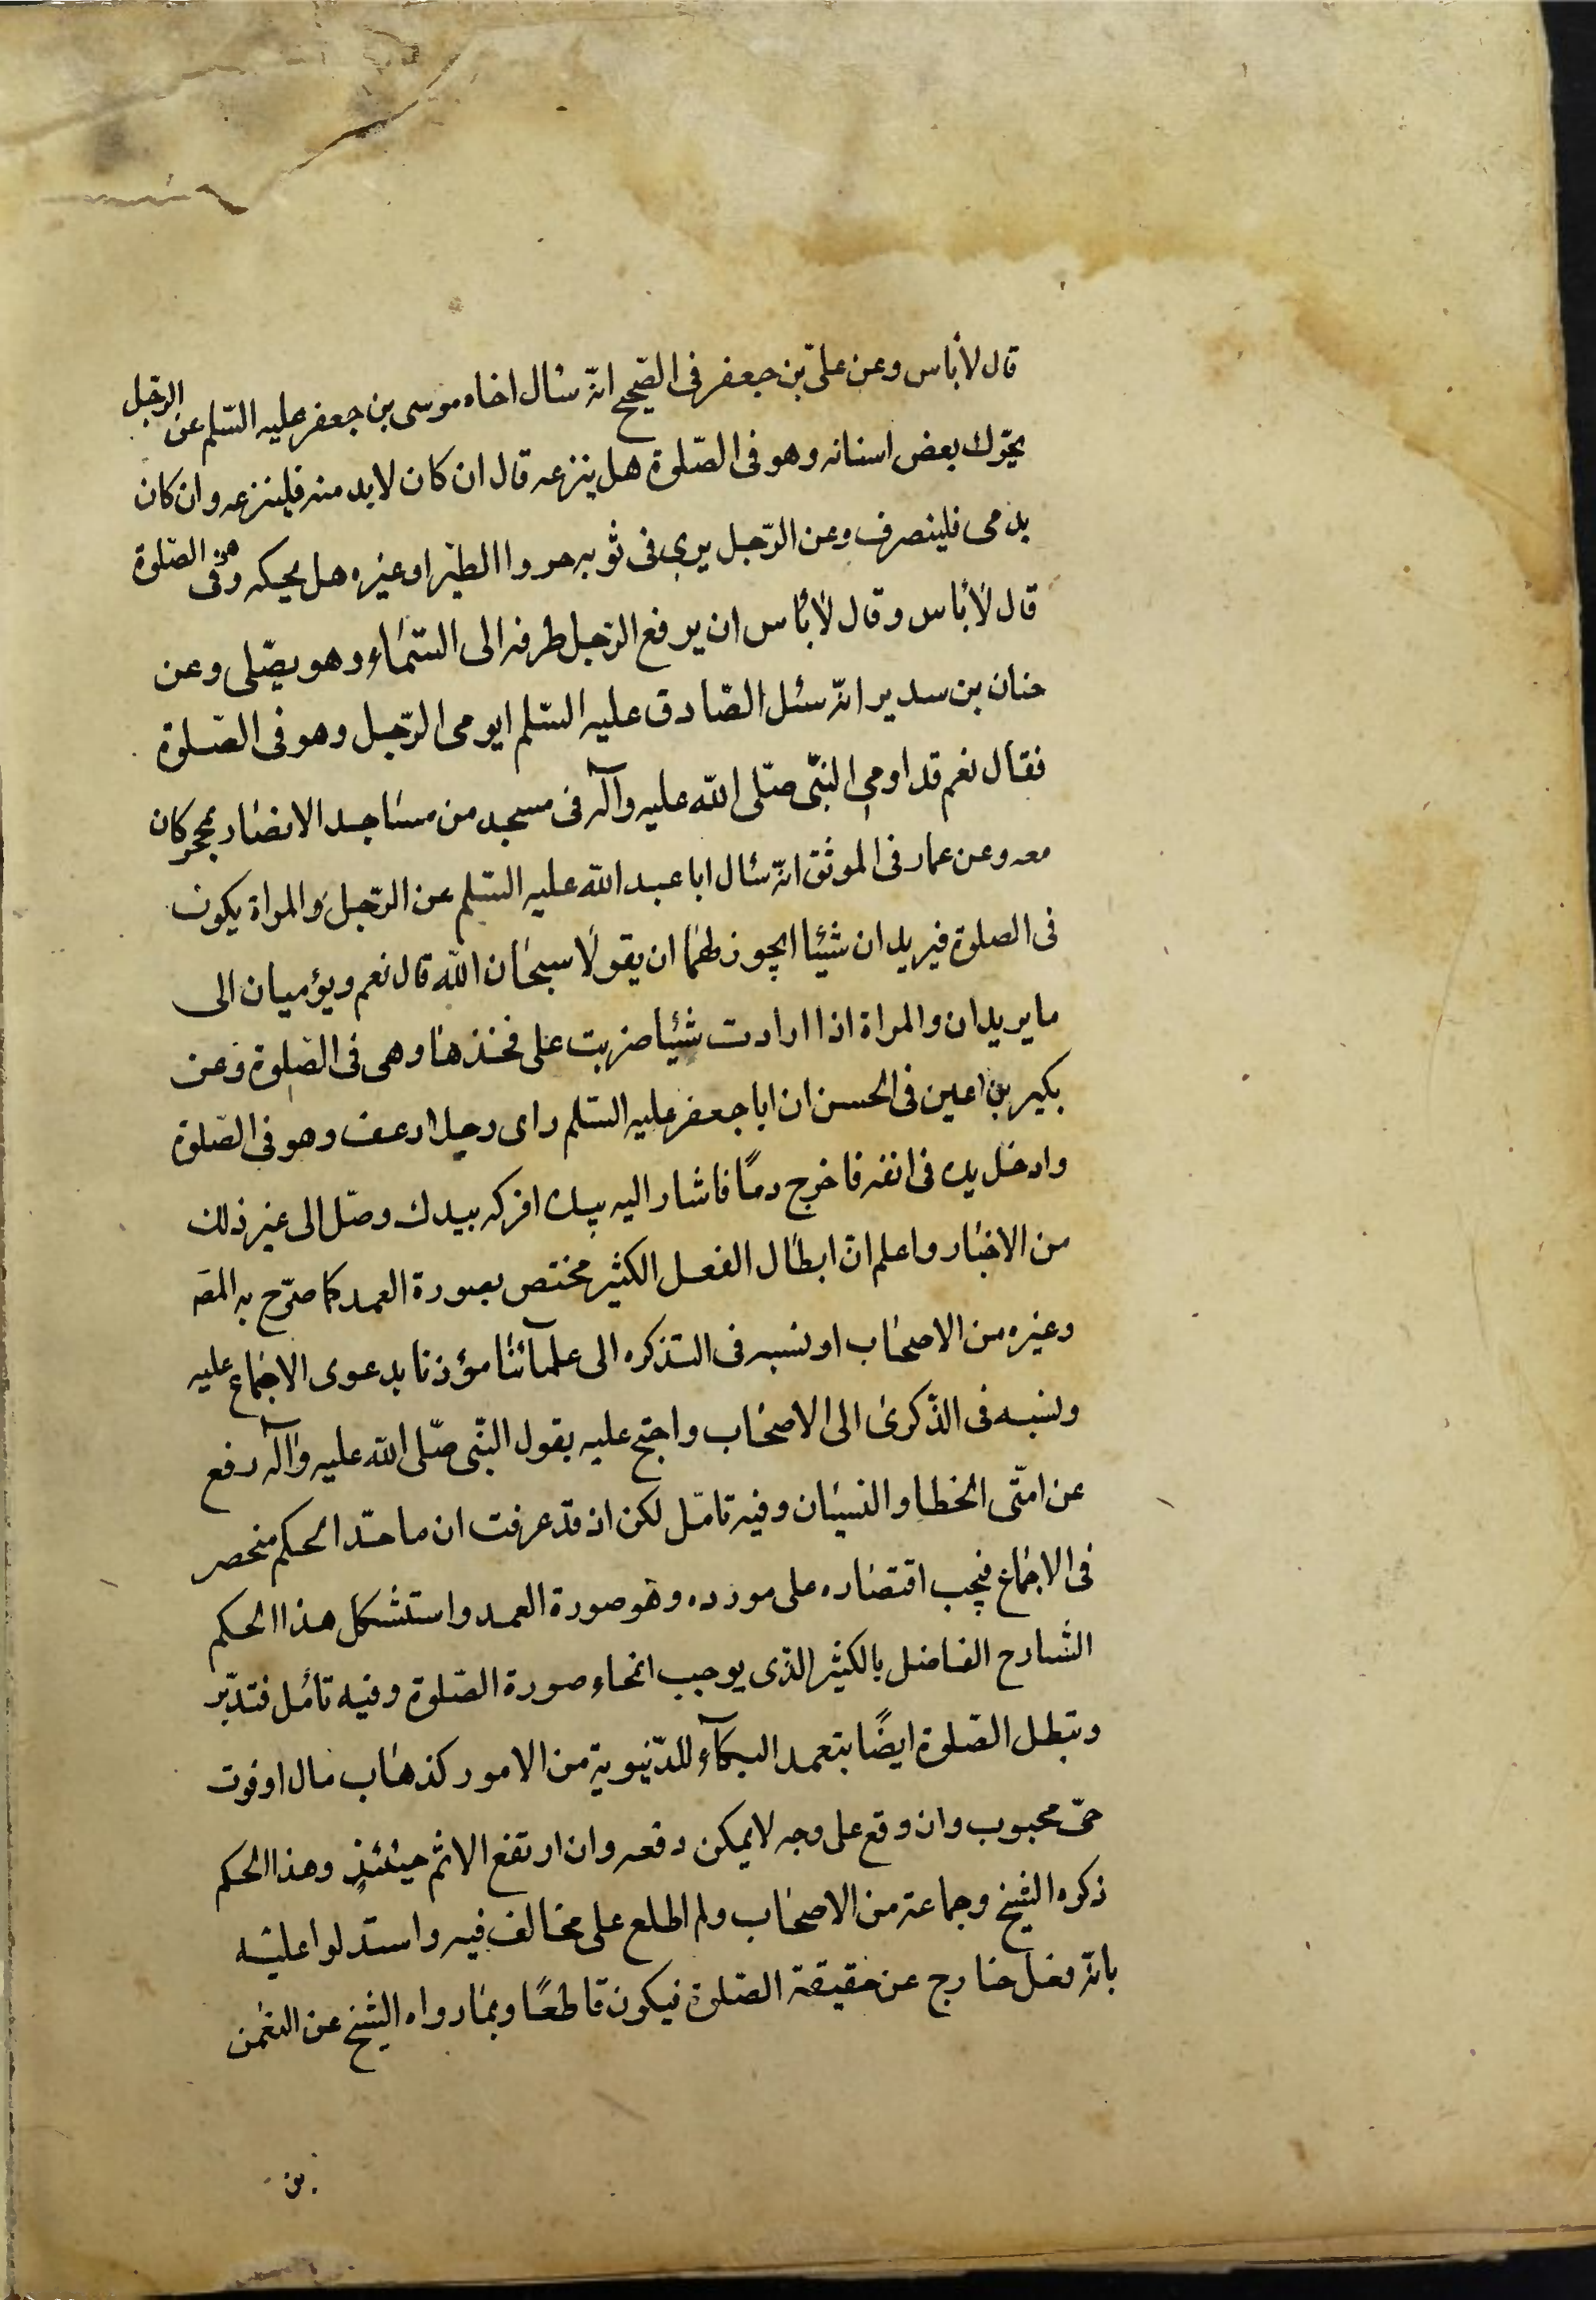 قال لا بأس وعن علىّ بن جعفر فى الصّحيح انّه سئال اخاه موسى بن جعفر عليه السّلم عن الرّجل
يحرّك بعض اسنانه وهو فى الصّلوة هل ينزعه قال ان كان لا بد منه فلينزعه وان كان
يدمى فلينصرف وعن الرّجل يرى فى ثوبه الطّير او غيره هل يحكه وهو فى الصّلوة
قال لا بأس وقال لا بأس ان يرفع الرّجل طرفه الى السّماء وهو يصّلى وعن
حنان بن سدير انّه سئل الصّادق عليه السّلم ايومى الرّجل وهو فى الصّلوة
فقال نعم قد اومى النبّى صلّى الله عليه وآله فى مسجد من مساجد الانصار بمحجر كان
معه وعن عمار فى الموثق انّه سئال ابا عبد الله عليه السّلم عن الرّجل والمراة يكون
فى الصلوة فيريدان شيئا ايجوز لهما ان يقولا سبحان الله قال نعم ويؤميان الى
ما يريدان والمراة اذا ارادت شيئا ضربت على فخذها وهى فى الصّلوة وعن
بكير بن اعين فى الحسن ان ابا جعفر عليه السّلم راى رجلا رعف وهو فى الصّلوة
وادخل يده فى انفه فاخرج دمًا فاشار اليه بيده افركه بيدك وصّل الى غير ذلك
من الاخبار واعلم انّ ابطال الفعل الكثير مختص بصورة العمد كما صرّح به المصّ
وغيره من الاصحاب او نسبه فى التذكره الى علمآئنا مؤذنا بدعوى الاجماع عليه
ونسبه فى الذّكرى الى الاصحاب واحتج عليه بقول النبّى صلّى الله عليه وآله رفع
عن امّتى الخطا والنسيان وفيه تامّل لكن اذ قد عرفت ان ماخذ الحكم منحصر
فى الاجماع فيجب اقتصاره على مورده وهو صورة العمد واستشكل هذا الحكم
الشارح الفاضل بالكثير الذّى يوجب انمحاء صورة الصّلوة وفيه تأمّل فتدبّر
وتبطل الصّلوة ايضًا بتعمد البكآء للدّنيوية من الامور كذهاب مال او فوت
حىّ محبوب وان وقع على وجه لا يمكن دفعه وان ارتفع الاثم حينئذٍ وهذا الحكم
ذكره الشيخ وجماعة من الاصحاب ولم اطلع على مخالف فيه واستدلوا عليه
بانّه فعل خارج عن حقيقة الصّلوة فيكون قاطعًا وبما رواه الشيخ عن النعمن
بن